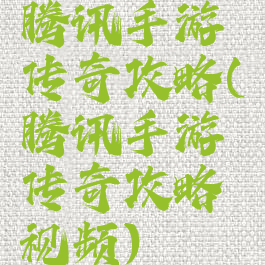 腾讯手游
传奇攻略(
腾讯手游
传奇攻略
视频)